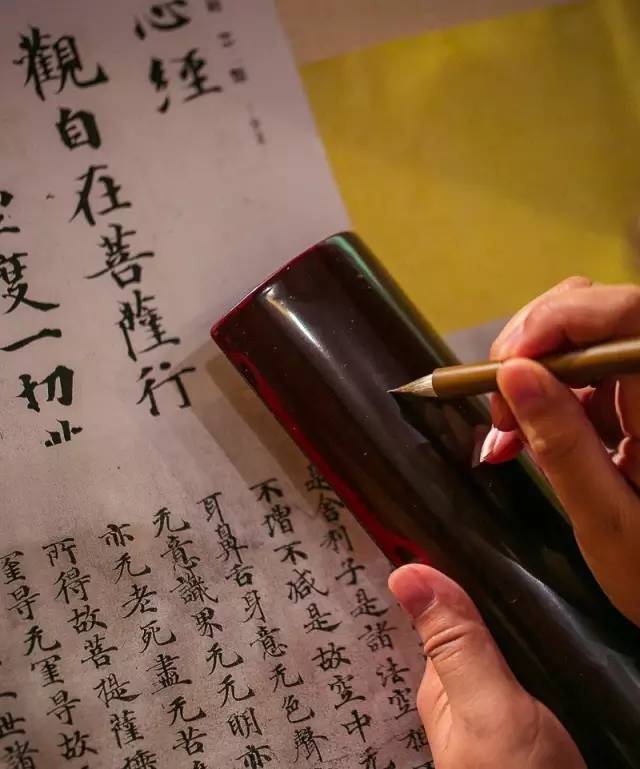 心經
觀自在菩薩行
度一切
是舍利子是諸法空
不增不減是故空中无
耳鼻舌身意无色聲
无意識界无无明亦
亦无老死盡无苦
所得故菩提薩埵
罣㝵无罣㝵故
世諸